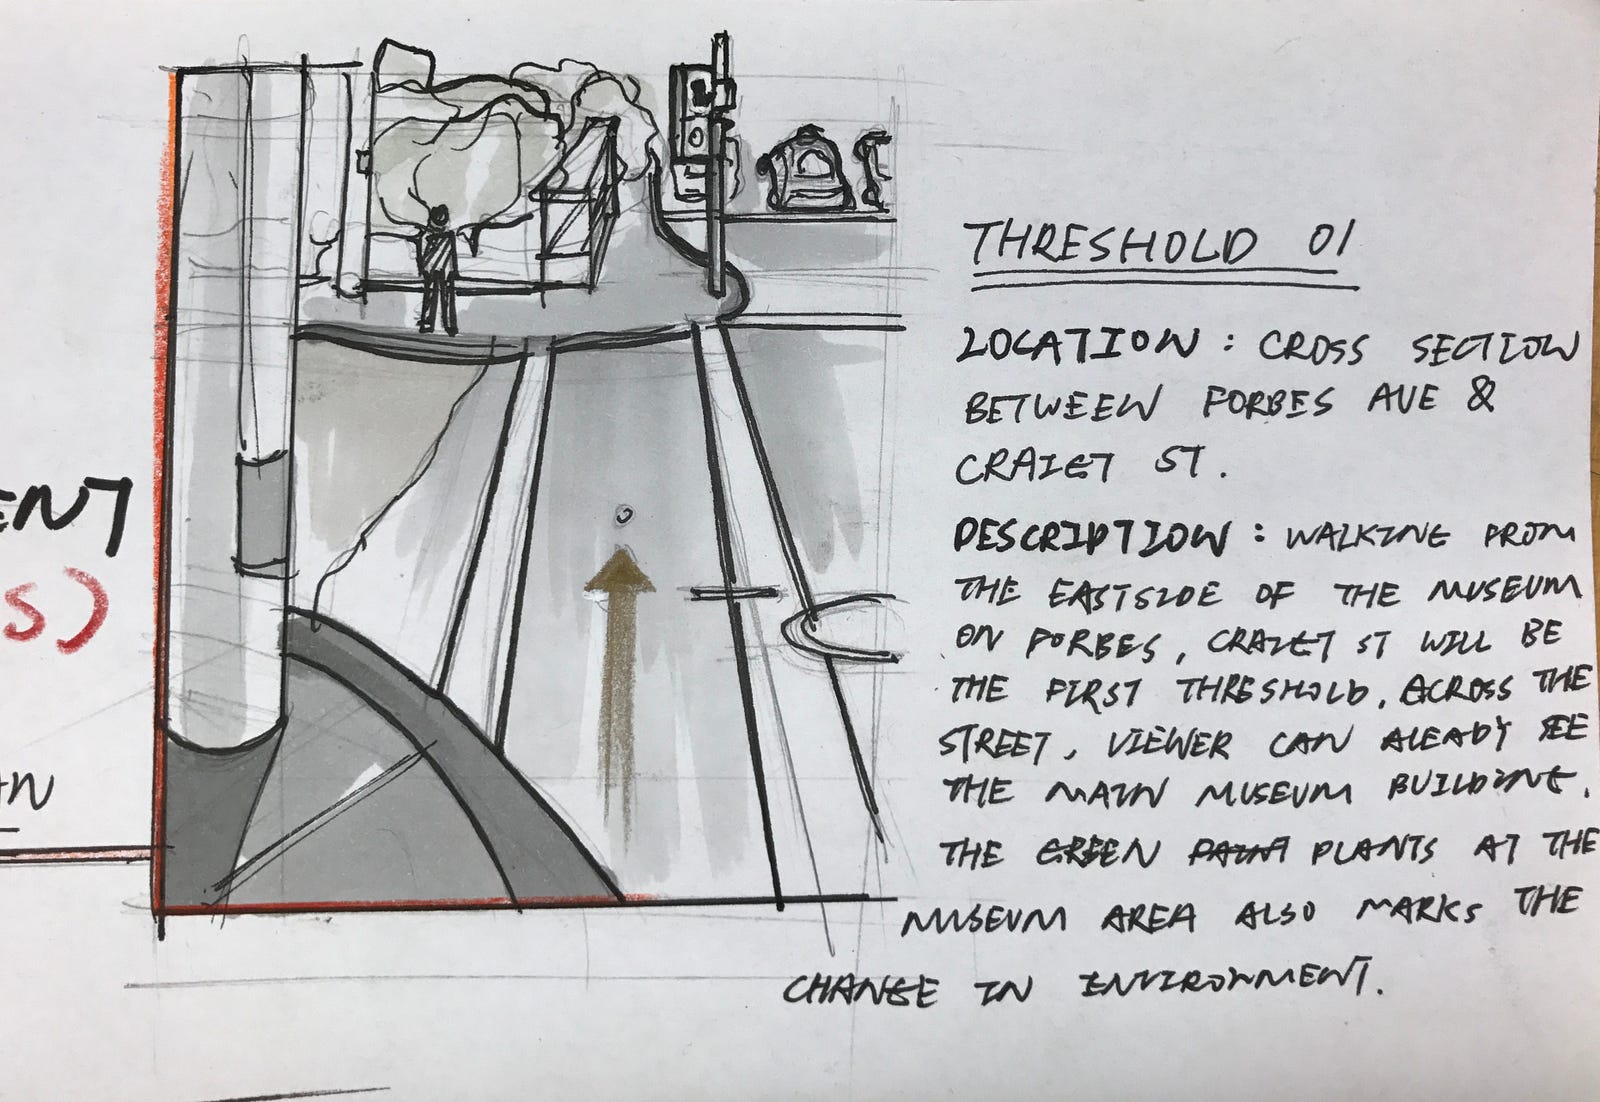 THRESHOLD 01
LOCATION : CROSS SECTION
BETWEEN FORBES AVE &
CRAIGT ST.
DESCRIPTION : WALKING FROM
THE EASTSIDE OF THE MUSEUM
ON FORBES, CRAIGT ST WILL BE
THE FIRST THRESHOLD. ACROSS THE
STREET, VIEWER CAN ALEADY SEE
THE MAIN MUSEUM BUILDING.
THE GREEN PAINT PLANTS AT THE
MUSEUM AREA ALSO MARKS THE
CHANGE IN ENVIRONMENT.
ENT
S)
AN